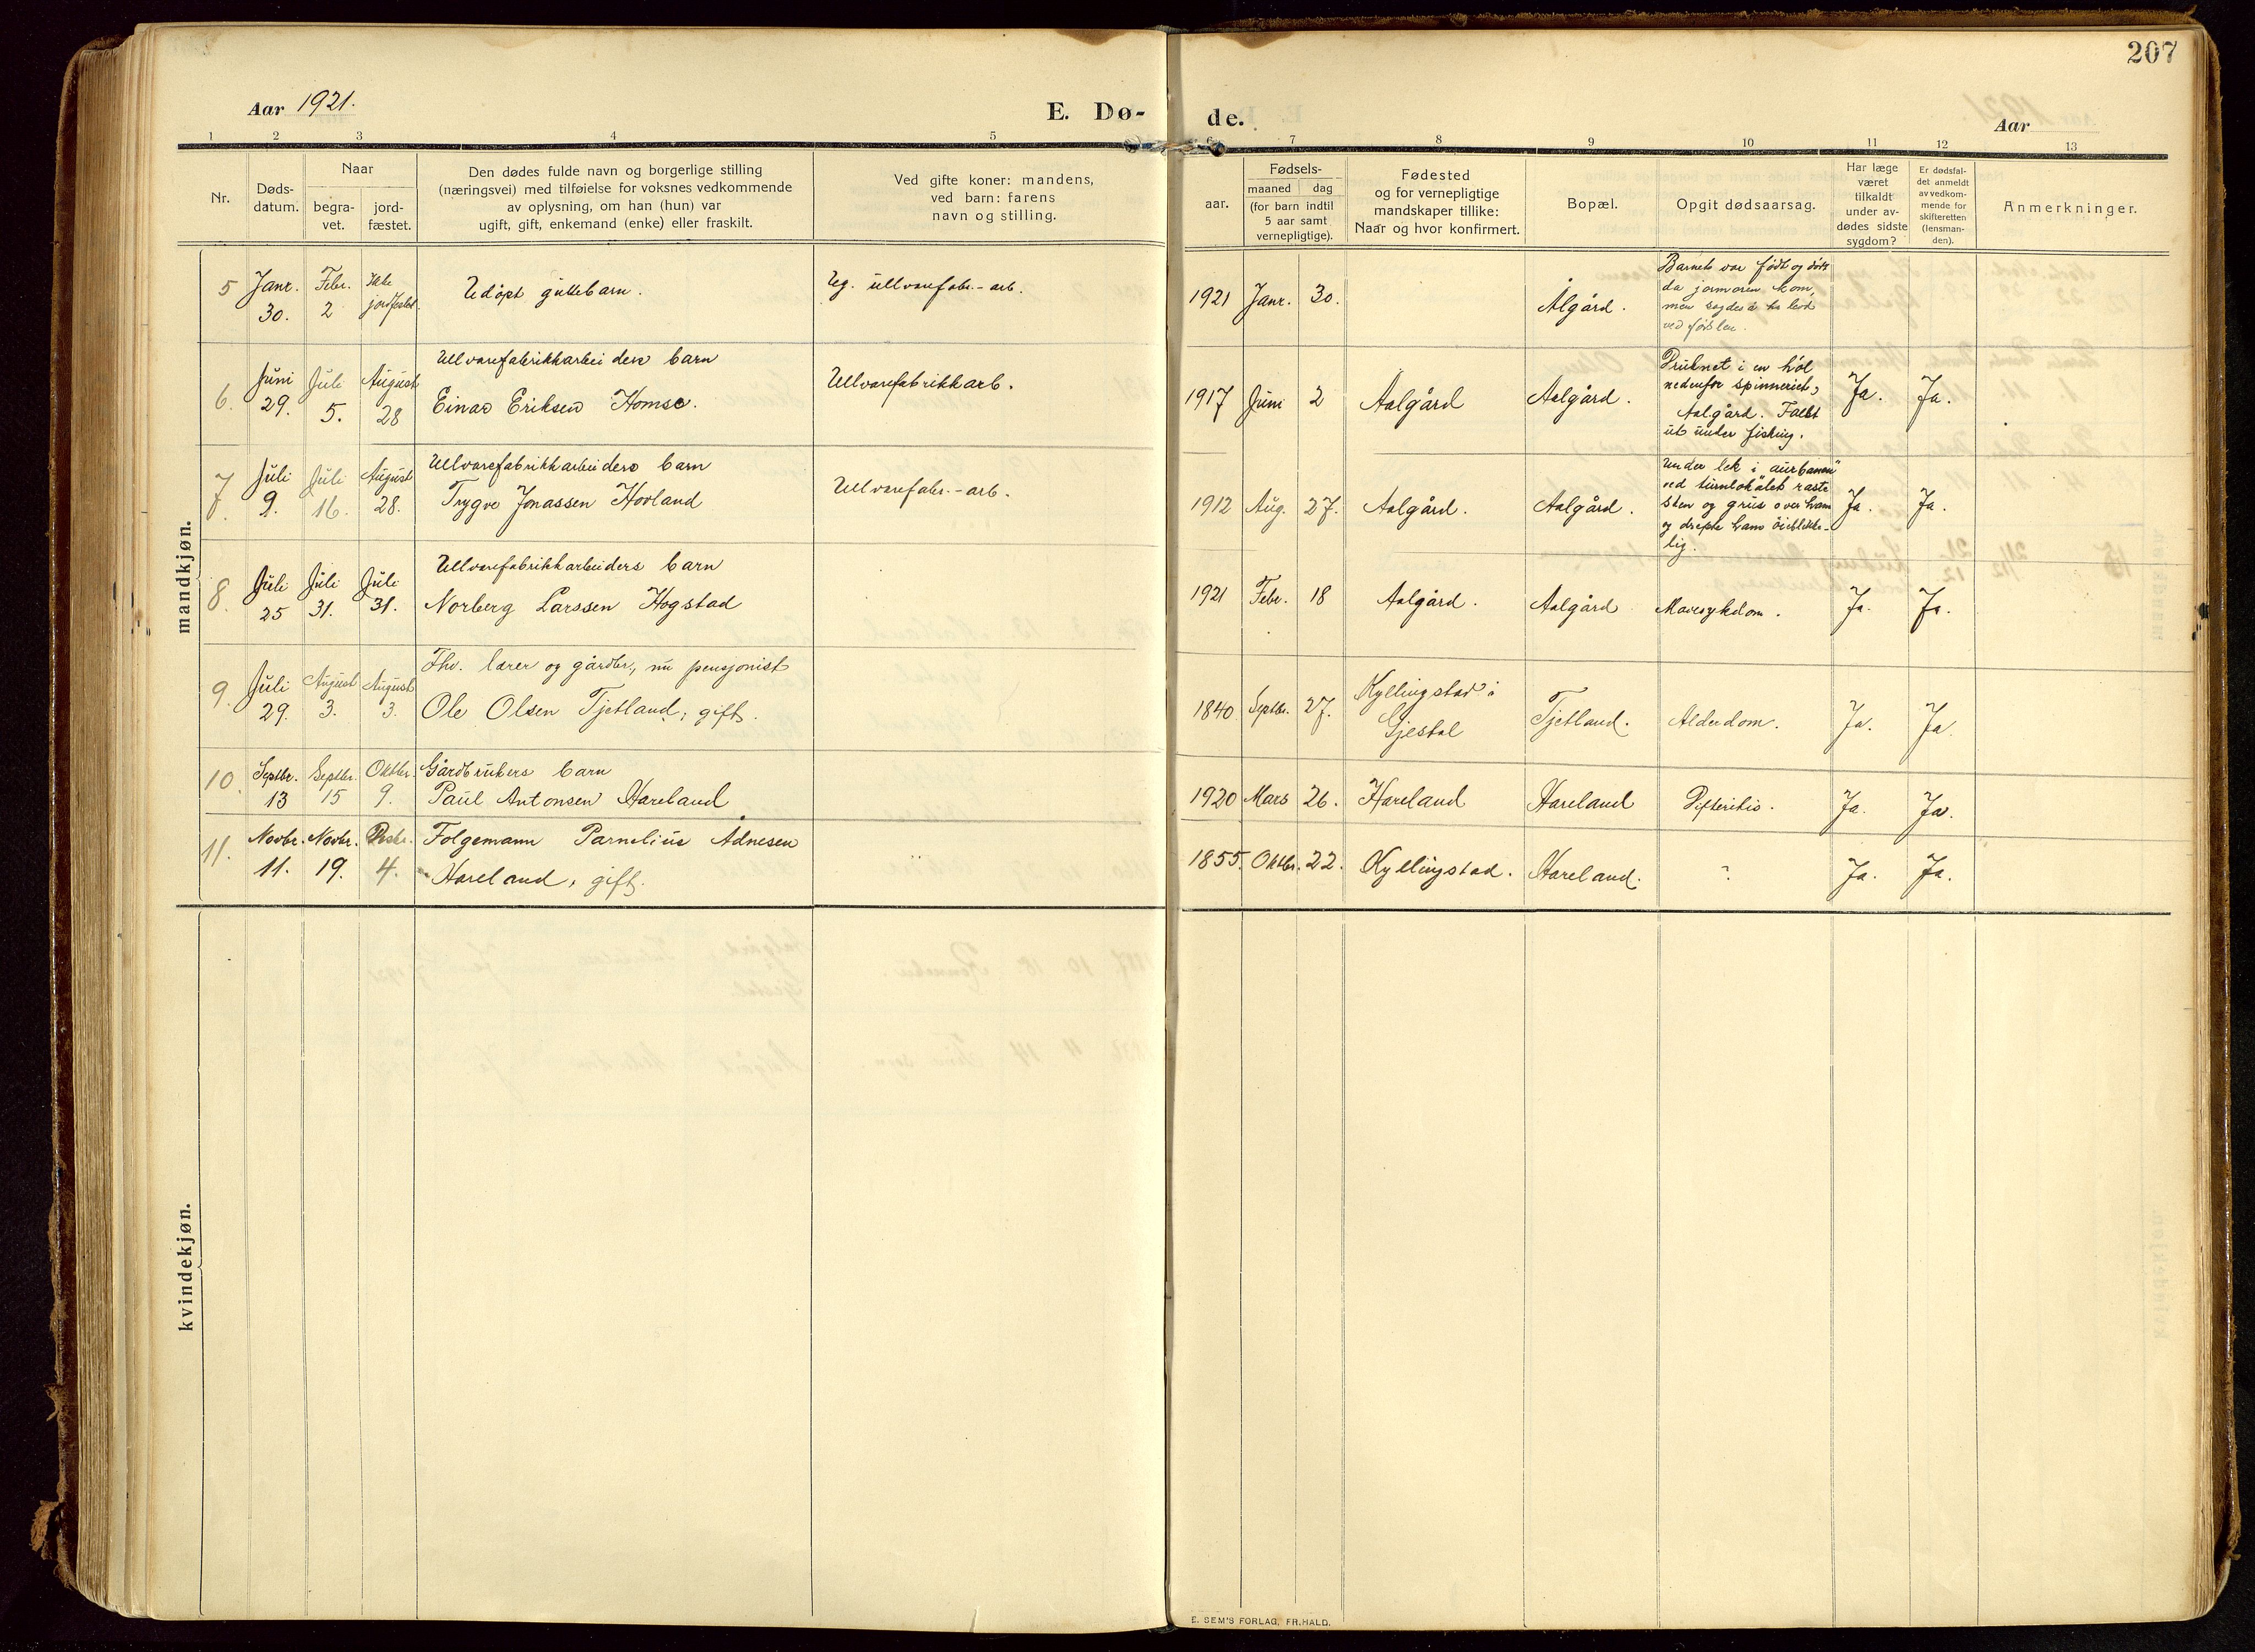 207
Aar 1921.
E. Dø-
de.
Aar
1 2 3 4 5 6 7 8 9 10 11 12 13
Nr.
Døds-
datum.
Naar
begra-
vet.
jord-
fæstet.
Den dødes fulde navn og borgerlige stilling
(næringsvei) med tilføielse for voksnes vedkommende
av oplysning, om han (hun) var
ugift, gift, enkemand (enke) eller fraskilt.
Ved gifte koner: mandens,
ved barn: farens
navn og stilling.
aar.
Fødsels-
maaned dag
(for barn indtil
5 aar samt
vernepligtige).
Fødested
og for vernepligtige
mandskaper tillike:
Naar og hvor konfirmert.
Bopæl.
Opgit dødsaarsag.
Har læge
været
tilkaldt
under av-
dødes sidste
sygdom?
Er dødsfal-
det anmeldt
av vedkom-
mende for
skifteretten
(lensman-
den).
Anmerkninger.
mandkjøn.
5 Janr. 30. Febr. 2 Ikke jordfestet
Udöpt guttebarn.
Ug. ullvarefabr.-arb.
1921 Janr. 30.
Ålgård.
Barnet var født og dödt
da jormoren kom,
men sagdes å ha levd
ved födslen.
6. Juni 29. Juli 5. August 28
Ullvarefabrikkarbeiders barn
Einar Eriksen Homse.
Ullvarefabrikkarb.
1917 Juni 2 Aalgård Aalgård.
Druknet i en höl
nedenfor spinneriet,
Aalgård. Falt
ut under fisking.
Ja. Ja.
7. Juli 9. Juli 16. August 28.
Ullvarefabrikkarbeiders barn
Trygve Jonassen Hovland
Ullvarefabr.-arb.
1912 Aug. 27. Aalgård. Aalgård.
Under lek i "aurbanen"
ved turnlokalet raste
sten og grus over ham
og drepte ham öieblikke-
lig.
Ja. Ja.
8. Juli 25 Juli 31. Juli 31.
Ullvarefabrikkarbeiders barn
Norberg Larssen Hogstad
1921 Febr. 18 Aalgård. Aalgård Mavesykdom. Ja. Ja.
9. Juli 29. August 3. August 3.
Fhv. lærer og gårdbr., nu pensjonist
Ole Olsen Tjetland, gift.
1840 Septbr. 27. Kyllingstad i
Gjestal
Tjetland. Alderdom. Ja. Ja.
10. Septbr. 13 Septbr. 15 Oktbr. 9.
Gårdbrukers barn
Paul Antonsen Hareland
1920 Mars 26. Hareland Hareland Difteritis. Ja. Ja.
11. Novbr. 11. Novbr. 19. 4.
Folgemann Parnelius Adnesen
Hareland, gift.
1855. Oktbr. 22. Kyllingstad. Hareland. Ja. Ja.
kvindekjøn.
E. SEM'S FORLAG, FR.HALD.